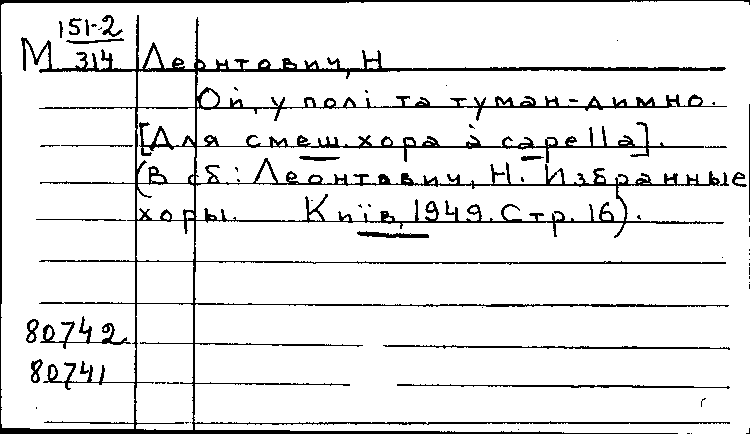 М 151-2/314 Леонтович, Н
Ой, у полі та туман-димно.
[Для смеш. хора à capella].
(В сб.: Леонтович, Н. Избранные
хоры. Київ, 1949. Стр. 16).
80742
80741